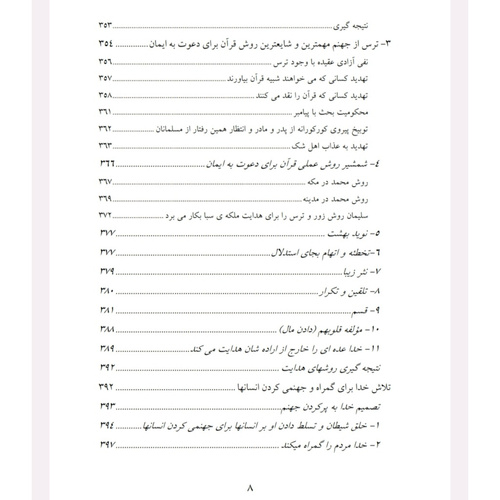 نتیجه گیری ۳۵۳
۳- ترس از جهنم مهمترین و شایعترین روش قرآن برای دعوت به ایمان ۳۵۴
نفی آزادی عقیده با وجود ترس ۳۵۶
تهدید کسانی که می خواهند شبیه قرآن بیاورند ۳۵۷
تهدید کسانی که قرآن را نقد می کنند ۳۵۸
محکومیت بحث با پیامبر ۳۶۱
توبیخ پیروی کورکورانه از پدر و مادر و انتظار همین رفتار از مسلمانان ۳۶۲
تهدید به عذاب اهل شک ۳۶۳
۴- شمشیر روش عملی قرآن برای دعوت به ایمان ۳۶۶
روش محمد در مکه ۳۶۷
روش محمد در مدینه ۳۶۹
سلیمان روش زور و ترس را برای هدایت ملکه ی سبا بکار می برد ۳۷۲
۵- نوید بهشت ۳۷۷
۶-تخطئه و اتهام بجای استدلال ۳۷۷
۷- نثر زیبا ۳۷۹
۸- تلقین و تکرار ۳۸۰
۹- قسم ۳۸۱
۱۰- مؤلفه قلوبهم (دادن مال) ۳۸۸
۱۱- خدا عده ای را خارج از اراده شان هدایت می کند ۳۸۹
نتیجه گیری روشهای هدایت ۳۹۲
تلاش خدا برای گمراه و جهنمی کردن انسانها ۳۹۲
تصمیم خدا به پرکردن جهنم ۳۹۳
۱- خلق شیطان و تسلط دادن او بر انسانها برای جهنمی کردن انسانها ۳۹۴
۲- خدا مردم را گمراه میکند ۳۹۷
۸